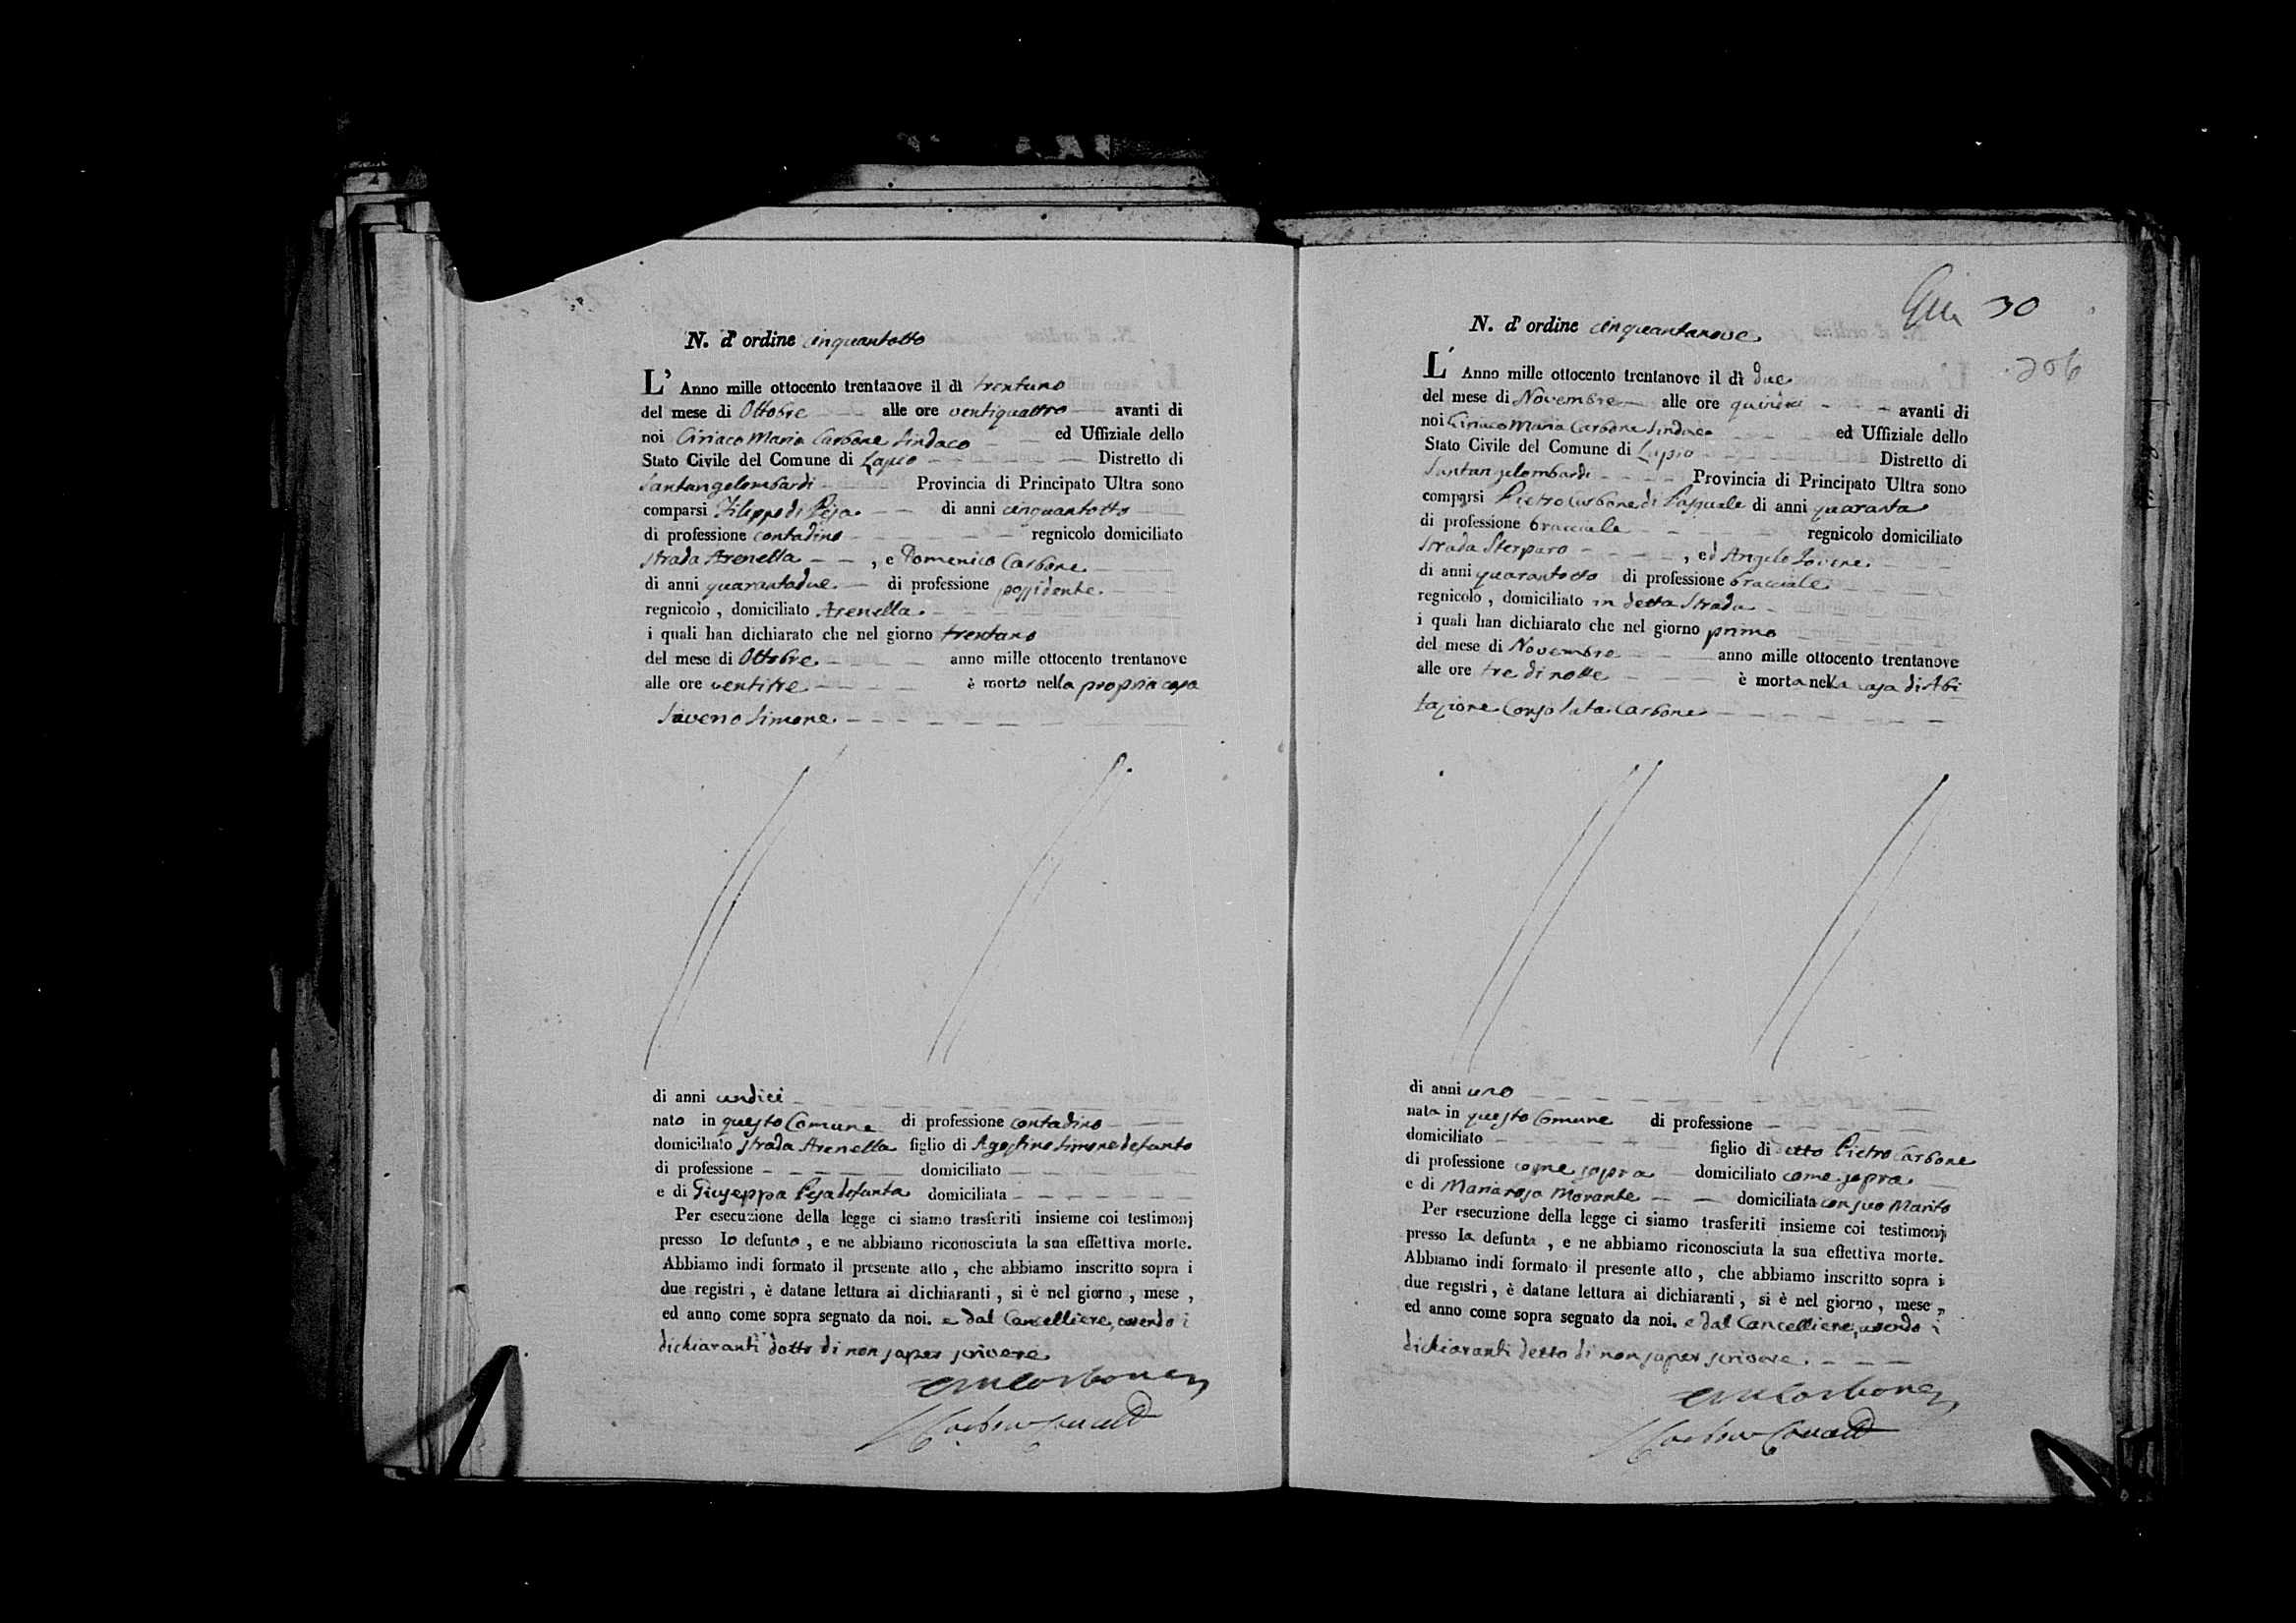 N. d' ordine cinquantotto
L' Anno mille ottocento trentanove il dì trentuno
del mese di Ottobre alle ore ventiquattro avanti di
noi Ciriaco Maria Carbone Sindaco ed Uffiziale dello
Stato Civile del Comune di Lapio Distretto di
Santangelombardi Provincia di Principato Ultra sono
comparsi Filippo di Pisa di anni cinquantotto
di professione contadino regnicolo domiciliato
strada Arenella , e Domenico Carbone
di anni quarantadue di professione possidente
regnicolo , domiciliato Arenella
i quali han dichiarato che nel giorno trentuno
del mese di Ottobre anno mille ottocento trentanove
alle ore ventitre è morto nella propria casa
Saveno Simone
di anni undici
nato in questo Comune di professione contadino
domiciliato strada Arenella figlio di Agostino Simone defunto
di professione domiciliato
e di Giuseppa Pisa defunta domiciliata
Per esecuzione della legge ci siamo trasferiti insieme coi testimonj
presso lo defunto , e ne abbiamo riconosciuta la sua effettiva morte.
Abbiamo indi formato il presente atto , che abbiamo inscritto sopra i
due registri , è datane lettura ai dichiaranti , si è nel giorno , mese ,
ed anno come sopra segnato da noi. e dal Cancelliere, avendo i
dichiaranti dotto di non saper scrivere
CMCarbone
30
206
N. d' ordine cinquantanove
L' Anno mille ottocento trentanove il dì due
del mese di Novembre alle ore quindici avanti di
noi Ciriaco Maria Carbone Sindaco ed Uffiziale dello
Stato Civile del Comune di Lapio Distretto di
Santangelombardi Provincia di Principato Ultra sono
comparsi Pietro Carbone di Pasquale di anni quaranta
di professione bracciale regnicolo domiciliato
strada Sterparo , ed Angelo Iovine
di anni quarantotto di professione bracciale
regnicolo , domiciliato in detta Strada
i quali han dichiarato che nel giorno primo
del mese di Novembre anno mille ottocento trentanove
alle ore tre di notte è morta nella casa di Abi
tazione Consolata Carbone
di anni uno
nata in questo Comune di professione
domiciliato figlio di detto Pietro Carbone
di professione come sopra domiciliato come sopra
e di Mariarosa Morante domiciliata con suo Marito
Per esecuzione della legge ci siamo trasferiti insieme coi testimonj
presso la defunta , e ne abbiamo riconosciuta la sua effettiva morte.
Abbiamo indi formato il presente atto , che abbiamo inscritto sopra i
due registri , è datane lettura ai dichiaranti , si è nel giorno , mese ,
ed anno come sopra segnato da noi. e dal Cancelliere, avendo i
dichiaranti detto di non saper scrivere.
CMCarbone